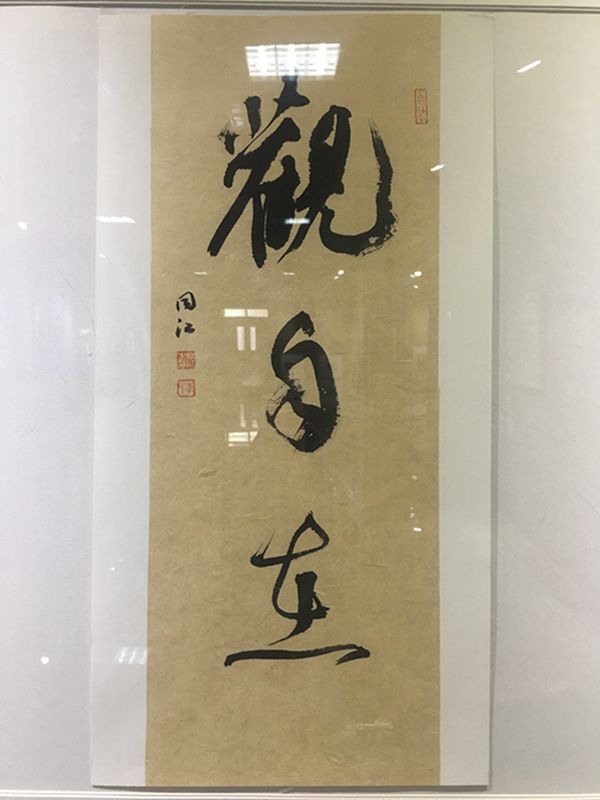 觀自在
同江